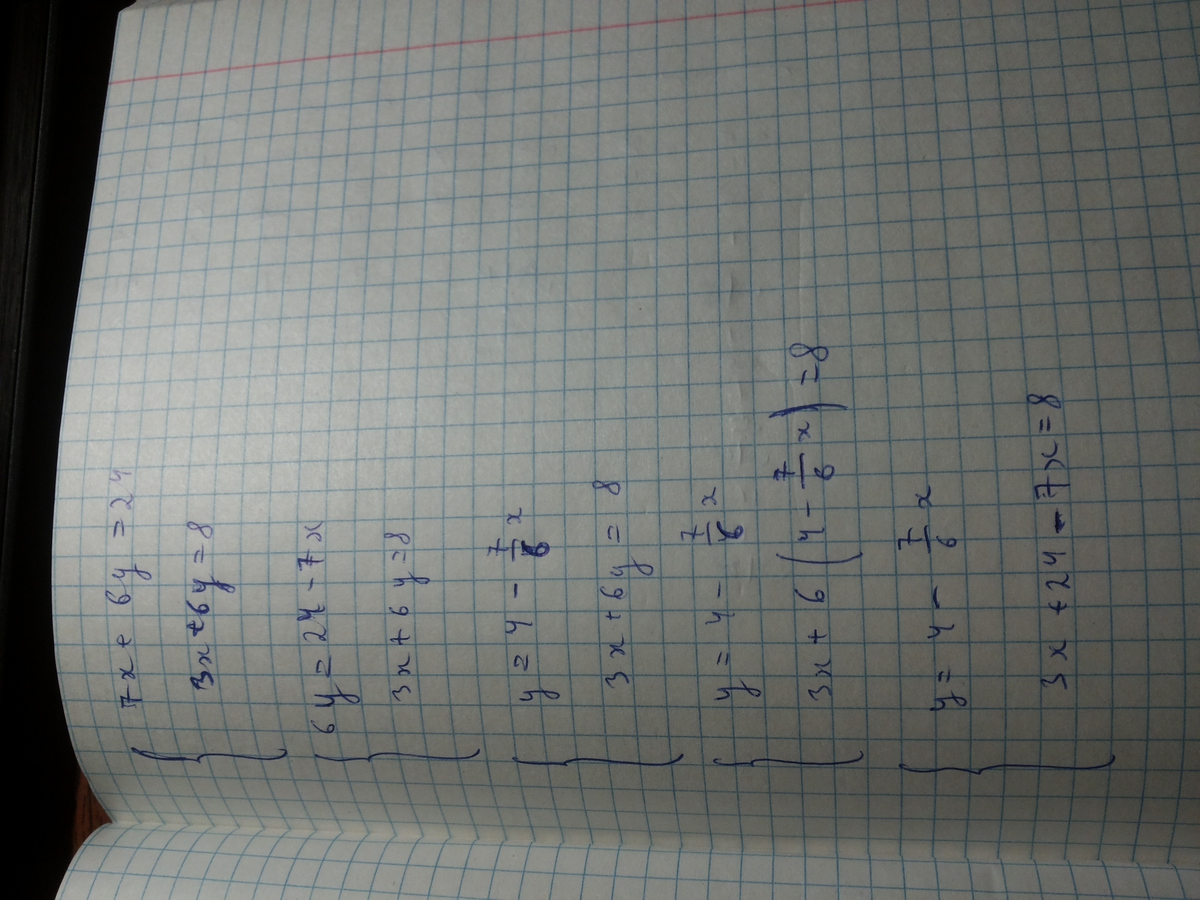 7x + 6y = 24
3x + 6y = 8
6y = 24 - 7x
3x + 6y = 8
y = 4 - 7/6 x
3x + 6y = 8
y = 4 - 7/6 x
3x + 6 (4 - 7/6 x) = 8
y = 4 - 7/6 x
3x + 24 - 7x = 8